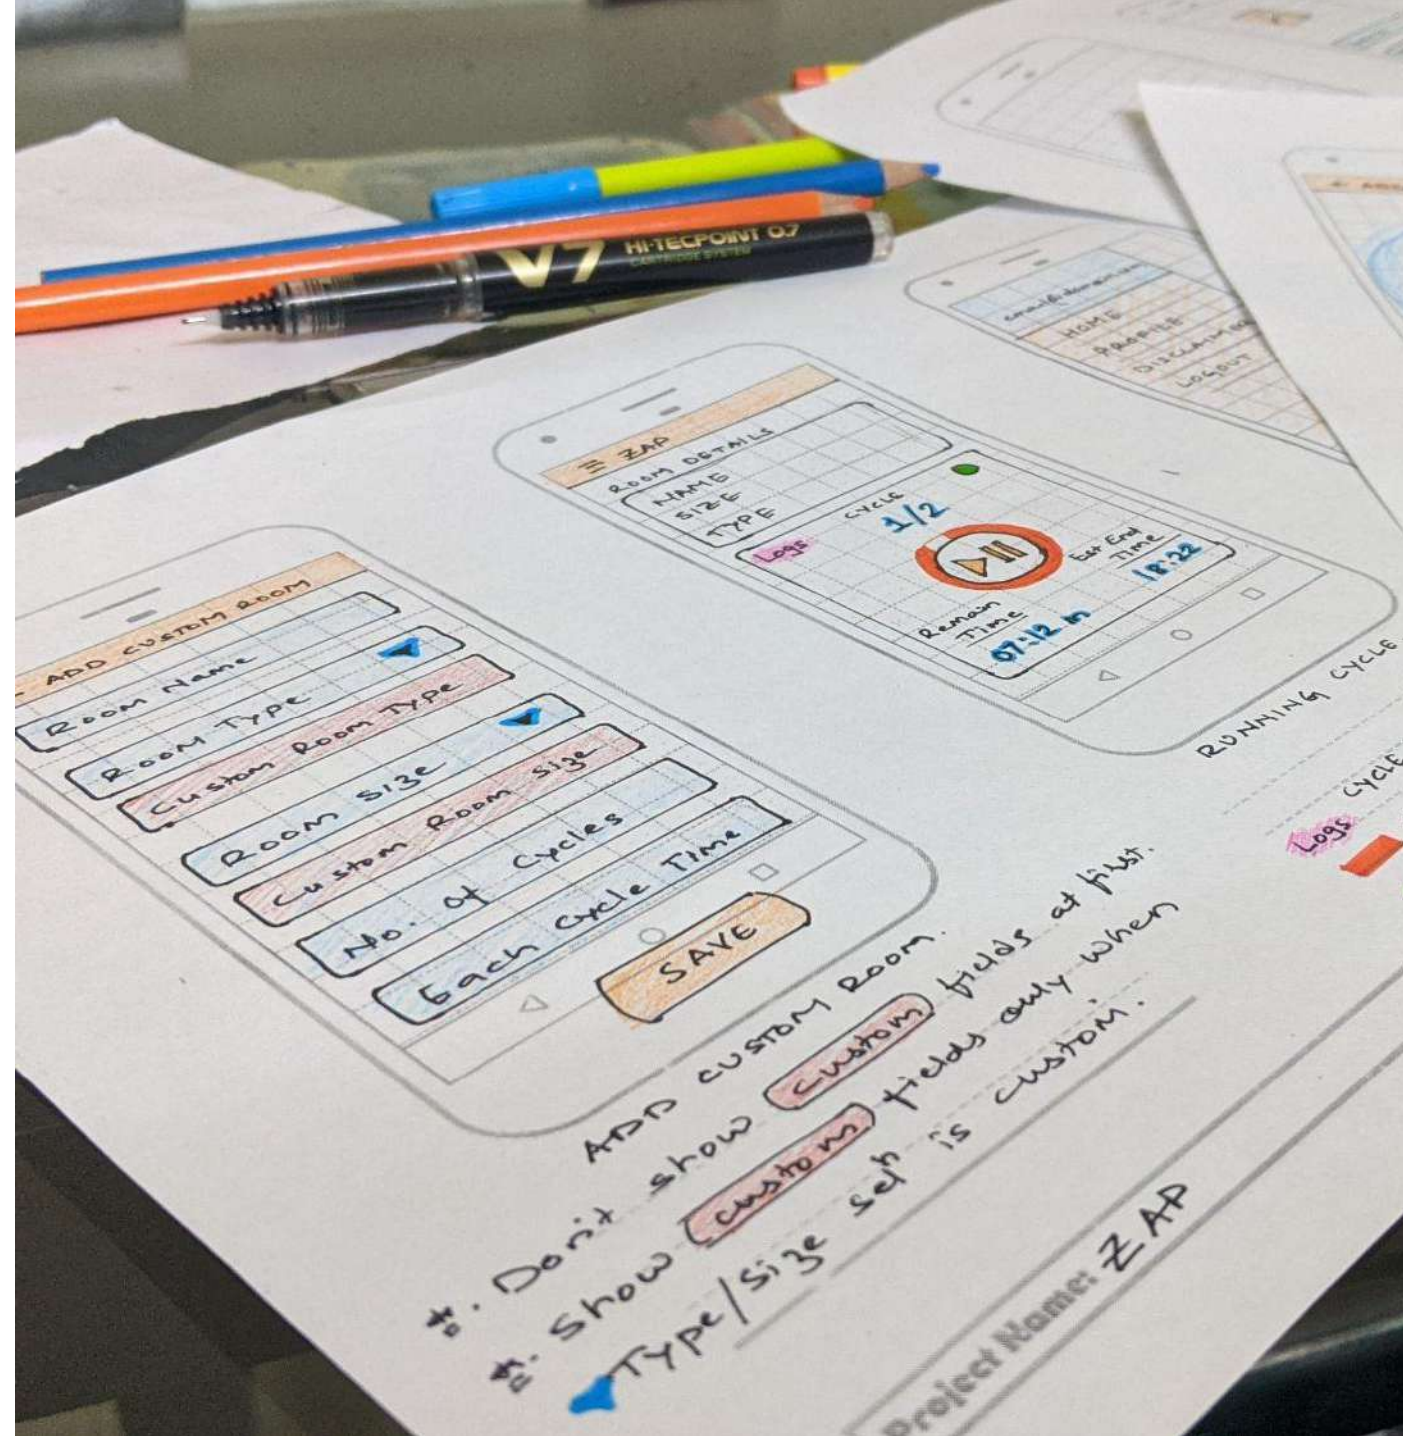 V7 HI-TECPOINT 0.7
CARTRIDGE SYSTEM
HOME
PROFILE
DISCLAIMER
LOGOUT
ZAP
ROOM DETAILS
NAME
SIZE
TYPE
Logs
CYCLE
1/2
Est End
Time
18:22
Remain
Time
07:12 m
RUNNING CYCLE
CYCLE
Logs
ADD CUSTOM ROOM
ROOM Name
ROOM TYPE
Custom Room Type
ROOM SIZE
Custom ROOM Size
No. of Cycles
Each Cycle Time
SAVE
ADD CUSTOM ROOM.
*. Don't show custom fields at first.
*. Show custom fields only when
Type/Size selⁿ is custom.
Project Name: ZAP